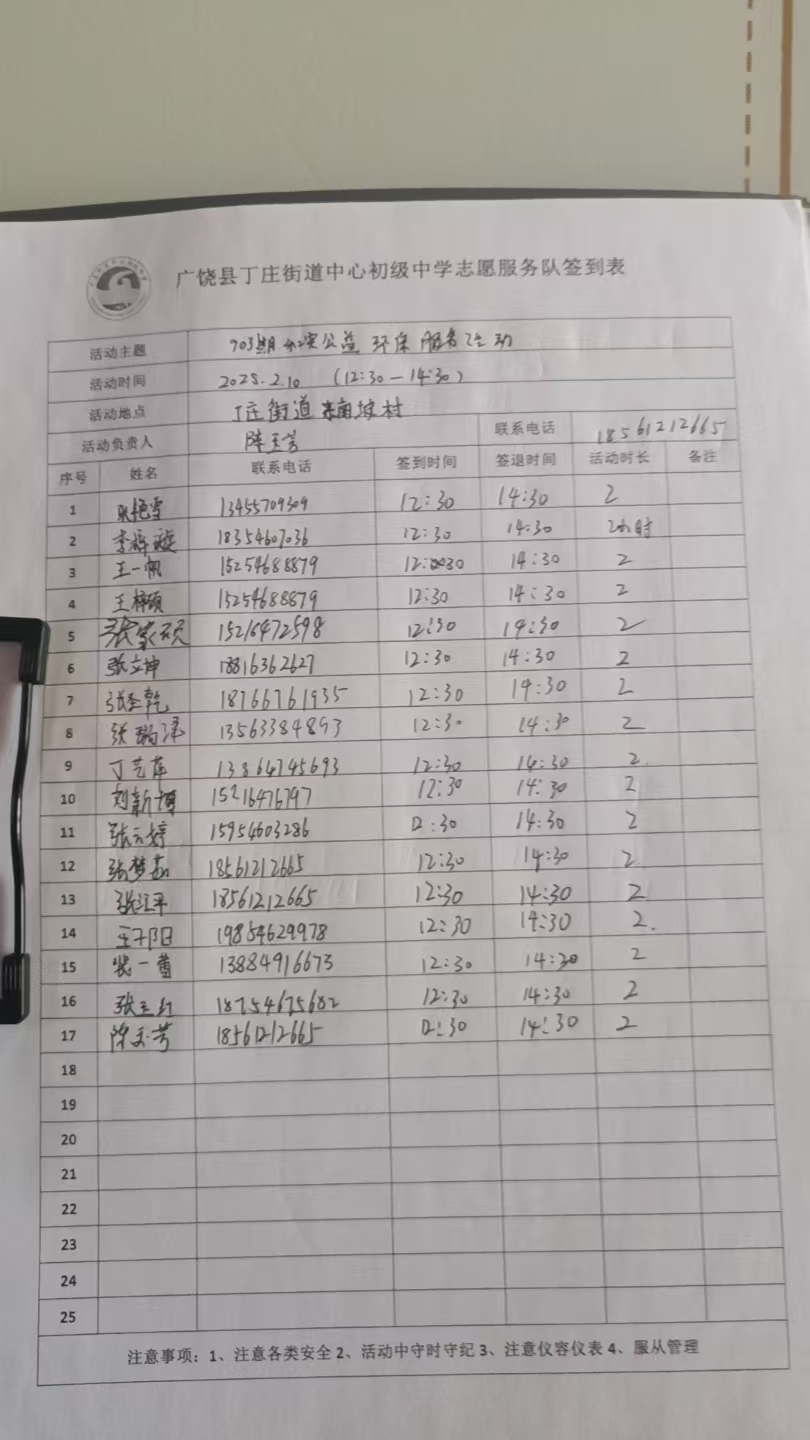 广饶县丁庄街道中心初级中学志愿服务队签到表
活动主题 703期 公益 环保 服务活动
活动时间 2025.2.10 (12:30－14:30)
活动地点 丁庄街道 南坡村
活动负责人 陈玉芳 联系电话 18561212665
序号 姓名 联系电话 签到时间 签退时间 活动时长 备注
1 耿艳雪 13455709309 12:30 14:30 2
2 李梓璇 18354607036 12:30 14:30 2小时
3 王一帆 15254688879 12:30 14:30 2
4 王梓硕 15254688879 12:30 14:30 2
5 张家硕 15216472598 12:30 14:30 2
6 张立坤 18816362627 12:30 14:30 2
7 张圣乾 18766761935 12:30 14:30 2
8 张瑞泽 13563384893 12:30 14:30 2
9 丁艺 13864745693 12:30 14:30 2
10 刘新博 15216476797 12:30 14:30 2
11 张云婷 15954603286 12:30 14:30 2
12 张梦 18561212665 12:30 14:30 2
13 张江平 18561212665 12:30 14:30 2
14 王子阳 19854629978 12:30 14:30 2
15 张一 13884916673 12:30 14:30 2
16 张玉红 18754675682 12:30 14:30 2
17 陈玉芳 18561212665 12:30 14:30 2
18
19
20
21
22
23
24
25
注意事项：1、注意各类安全 2、活动中守时守纪 3、注意仪容仪表 4、服从管理